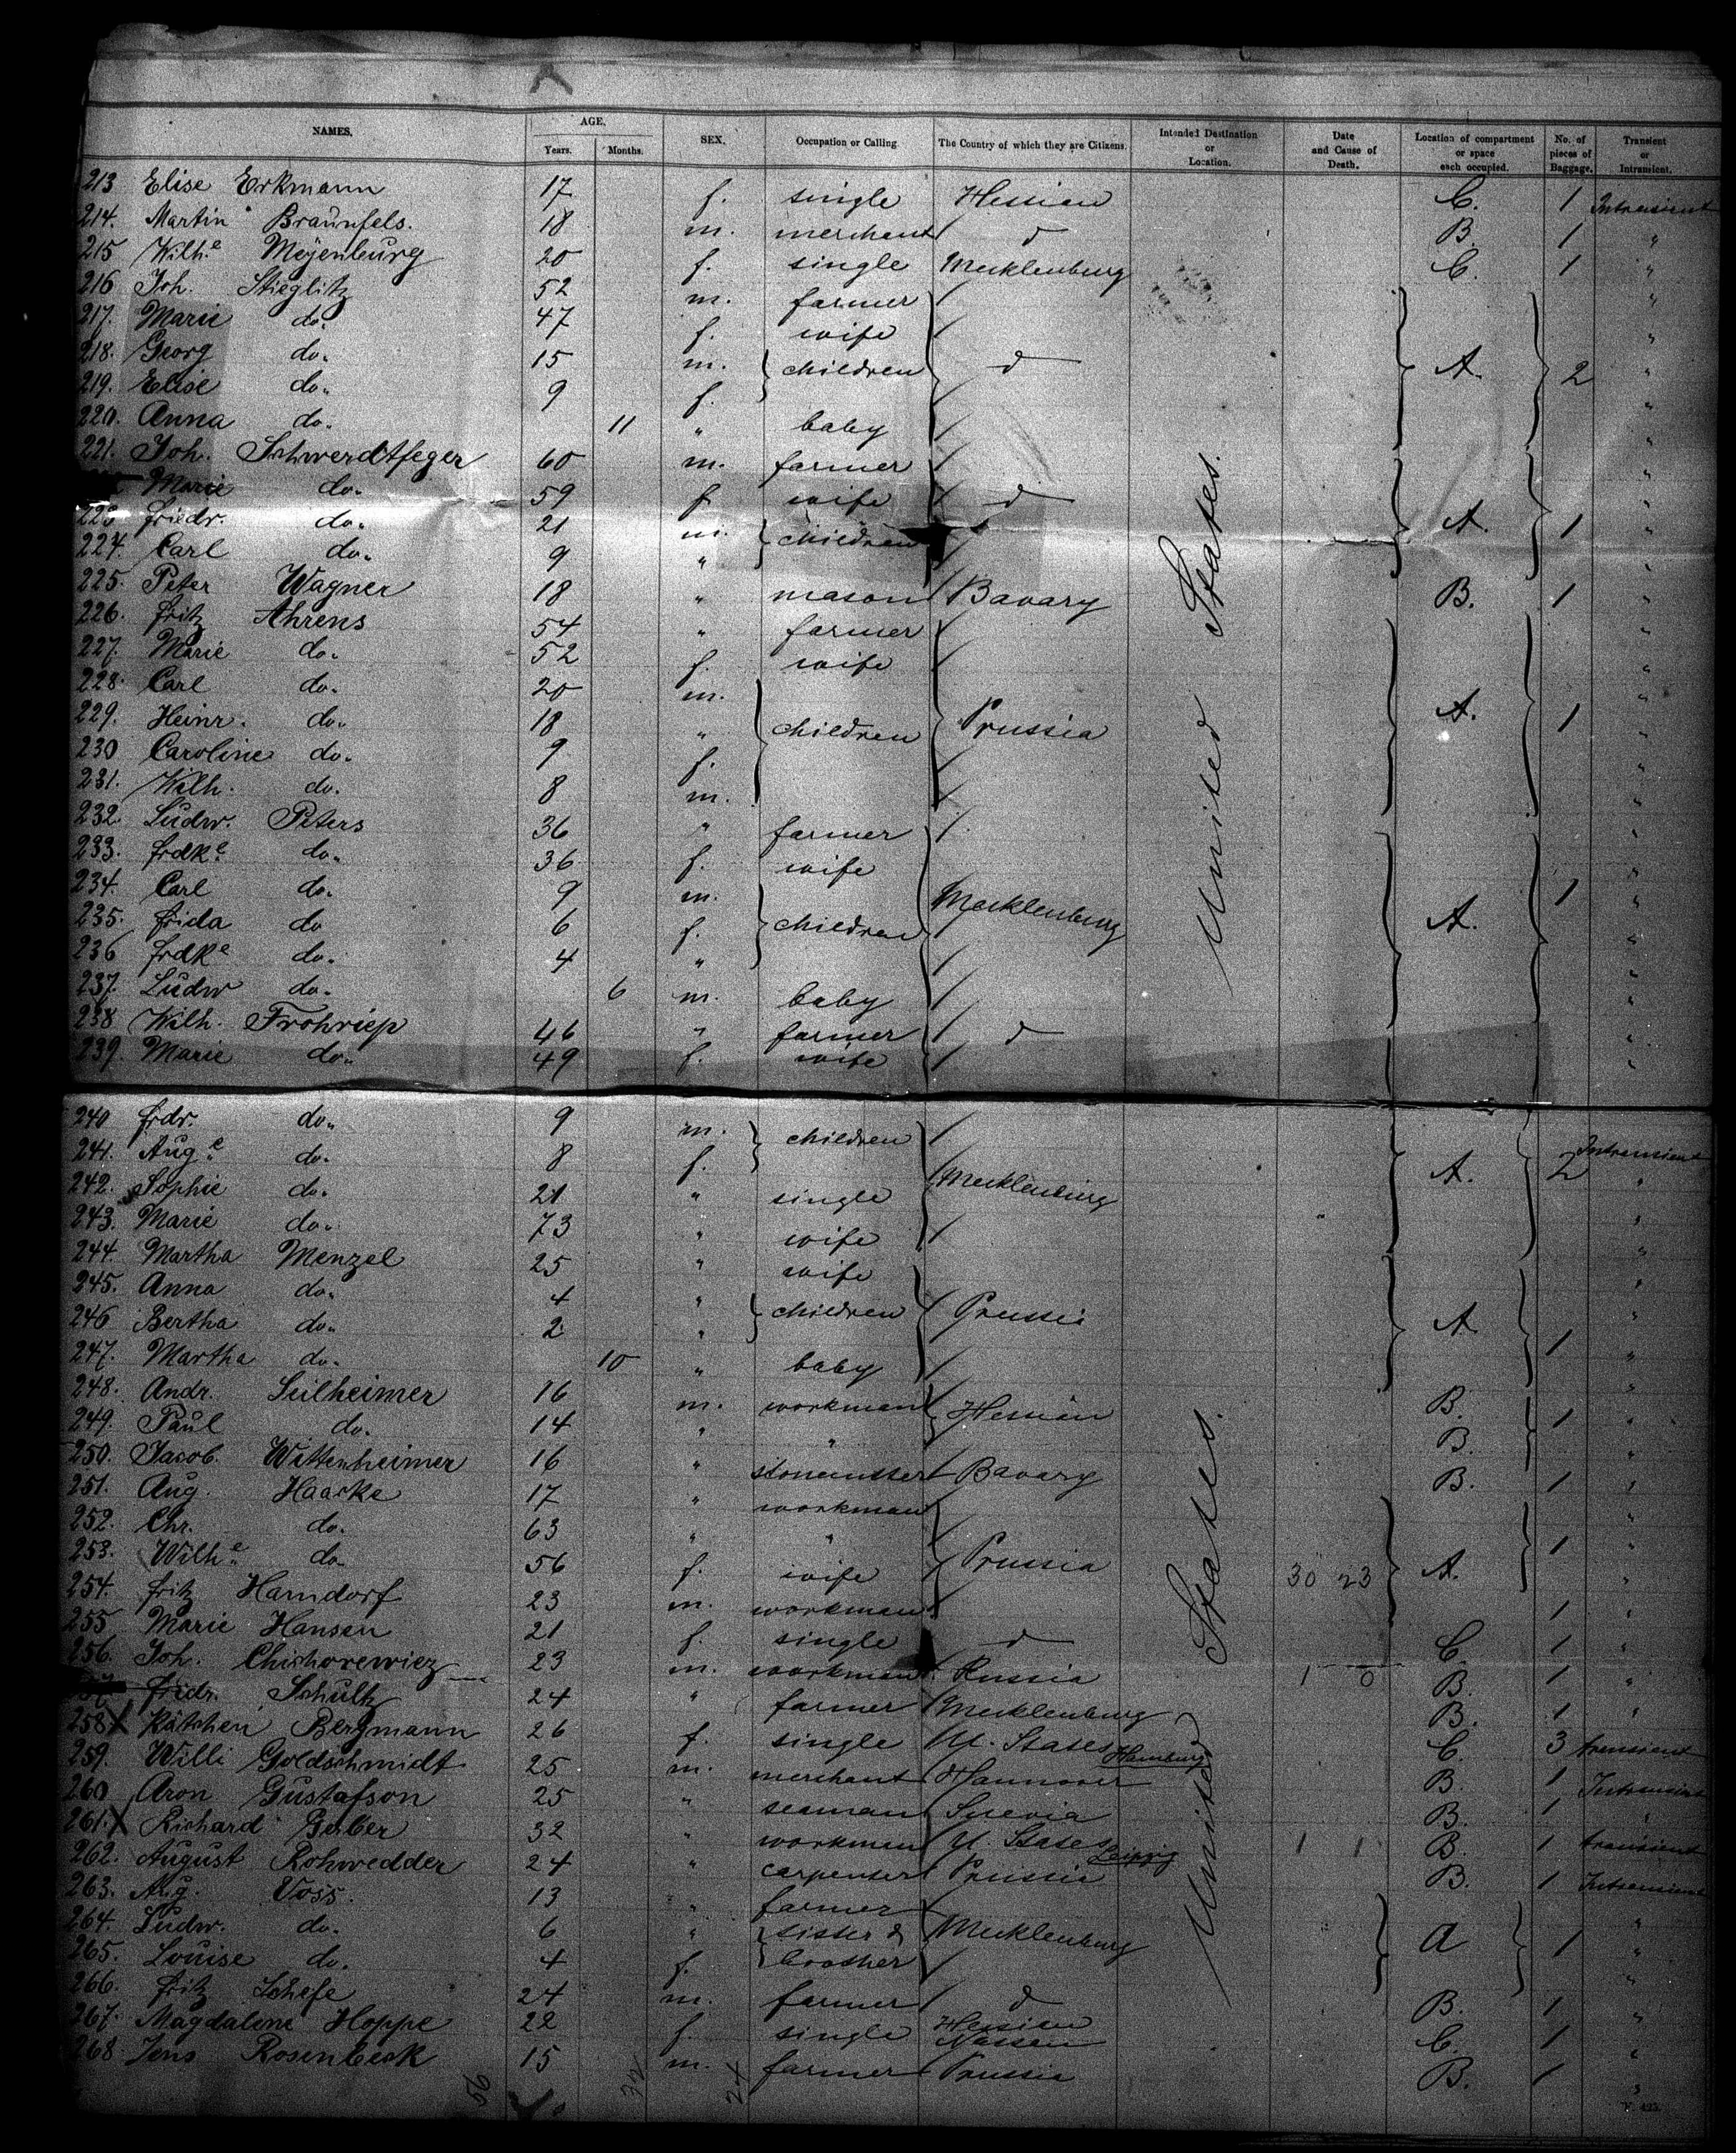 NAMES. AGE. Years. Months. SEX. Occupation or Calling The Country of which they are Citizens. Intended Destination or Location. Date and Cause of Death. Location of compartment or space each occupied. No. of pieces of Baggage. Transient or Intransient.
213 Elise Erkmann 17 f. single Hessian C. 1 Intransient
214. Martin Braunfels. 18 m. merchant d B. 1 "
215 Wilh.e Meyenburg 20 f. single Mecklenburg C. 1 "
216 Joh. Stieglitz 52 m. farmer "
217. Marie do. 47 f. wife "
218. Georg do. 15 m. children d A. 2 "
219. Elise do. 9 f. "
220. Anna do. 11 " baby "
221. Joh. Schwerdtfeger 60 m. farmer "
Marie do. 59 f. wife d "
223 Friedr. do. 21 m. children A. 1 "
224. Carl do. 9 " "
225. Peter Wagner 18 " mason Bavary B. 1 "
226. Fritz Ahrens 54 " farmer "
227. Marie do. 52 f. wife "
228. Carl do. 20 m. "
229. Heinr. do. 18 " children Prussia A. 1 "
230 Caroline do. 9 f. "
231. Wilh. do. 8 m. "
232. Ludw. Peters 36 " farmer "
233. Frdk.e do. 36 f. wife "
234. Carl do. 9 m. Mecklenburg 1 "
235. Frida do 6 f. children A. "
236 Frdke do. 4 " "
237. Ludw do. 6 m. baby "
238 Wilh. Frohriep 46 " farmer d "
239. Marie do. 49 f. wife "
United States.
240 Frdr. do. 9 m. children
241. Aug.e do. 8 f. Mecklenburg A. 2 Intransient
242. Sophie do. 21 " single "
243. Marie do. 73 " wife "
244. Martha Menzel 25 " wife "
245. Anna do. 4 " children Prussia "
246 Bertha do. 2 " A. 1 "
247. Martha do. 10 " baby "
248. Andr. Seilheimer 16 m. workman Hessian B. 1 "
249. Paul do. 14 " " B. "
250. Jacob. Wittenheimer 16 " stonecutter Bavary B. 1 "
251. Aug. Haacke 17 " workman "
252. Chr. do. 63 " " 1 "
253. Wilh.e do. 56 f. wife Prussia 30 23 A. "
254. Fritz Harndorf 23 m. workman 1 "
255 Marie Hansen 21 f. single d C. 1 "
256. Joh. 23 m. workman Russia 1 0 B. 1 "
Fridr. Schultz 24 " farmer Mecklenburg B. 1 "
258 X Kätchen Bergmann 26 f. single U. States Hamburg C. 3 transient
259. Willi Goldschmidt 25 m. merchant Hannover B. 1 Intransient
260 Aron Gustafson 25 " seaman B. 1 "
261. X Richard 32 " workman U. States Leipzig 1 1 B. 1 transient
262. August Rohwedder 24 " carpenter Prussia B. 1 Intransient
263. Aug. Voss. 13 " farmer "
264. Ludw. do. 6 " sister & Mecklenburg A 1 "
265. Louise do. 4 f. brother "
266. Fritz Schefe 24 m. farmer d B. 1 "
267. Magdaline Hoppe 22 f. single Hessian Nassau C. 1 "
268. Jens Rosenbeck 15 m. farmer Prussia B. 1 "
United States.
56 32 24